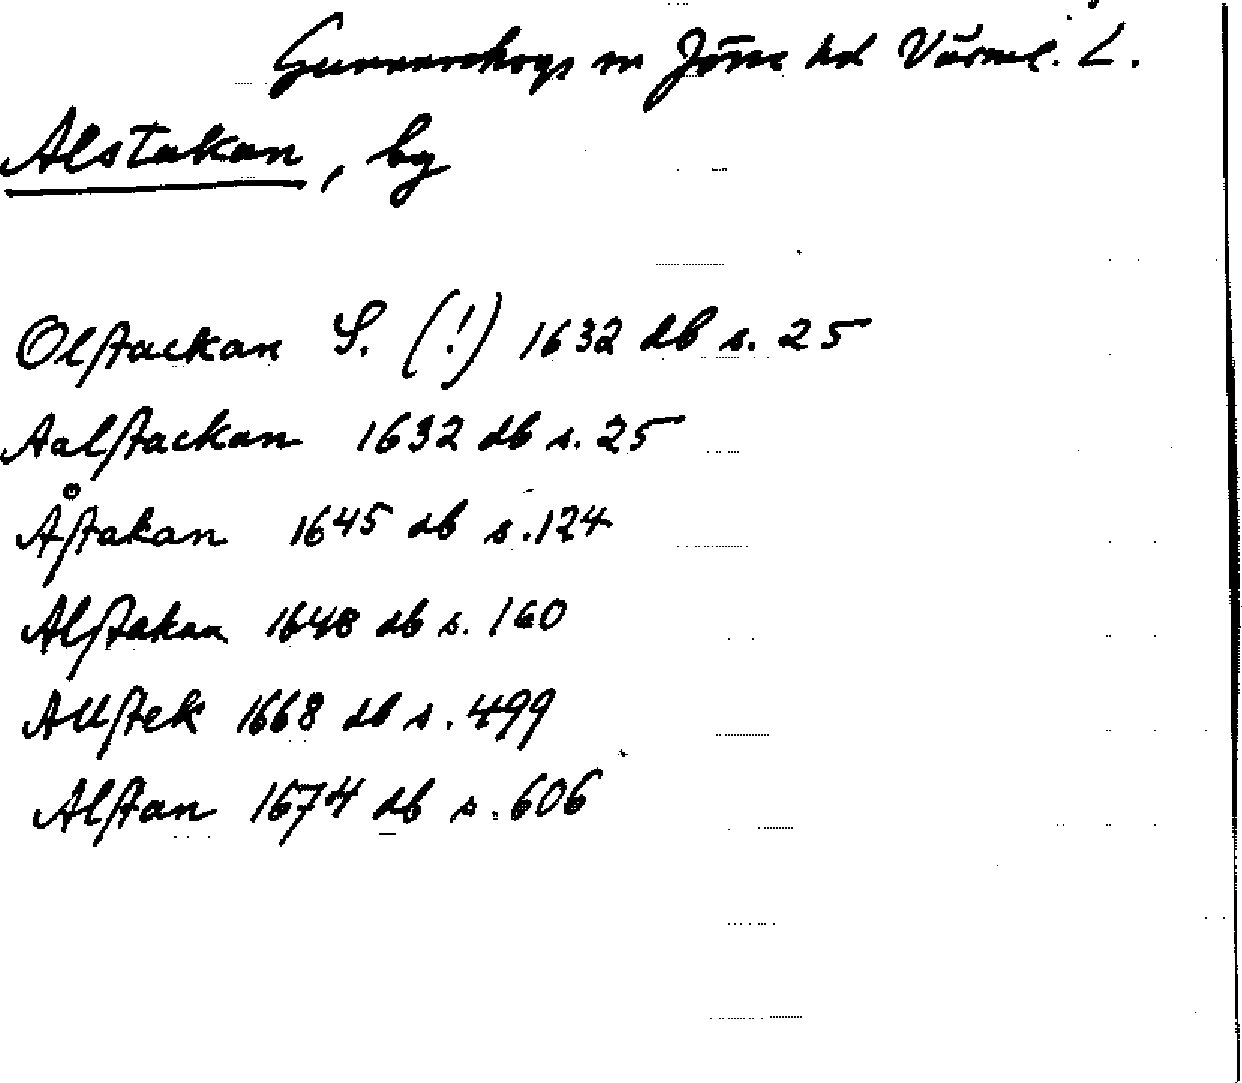 Gunnarskogs sn Jösse hd Värml. L.
Alstakan, by
Olstackan S. (!) 1632 db s. 25
Aalstackan 1632 db s. 25
Åstakan 1645 db s. 124
Alstakan 1648 db s. 160
Allstek 1668 db s. 499
Alstan 1674 db s. 606